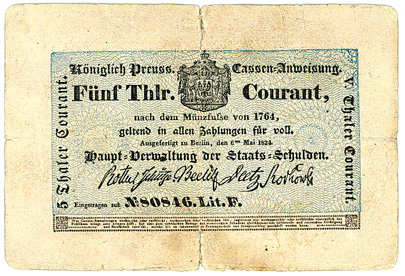 Königlich Preuss. Cassen-Anweisung.
Fünf Thlr. Courant,
nach dem Münzfusse von 1764,
geltend in allen Zahlungen für voll.
Ausgefertigt zu Berlin, den 6ten Mai 1824.
Haupt-Verwaltung der Staats-Schulden.
Rother Schütze Beelitz Deetz Rochow
Eingetragen sub No 80846. Lit. F.
5 Thaler Courant.
V. Thaler Courant